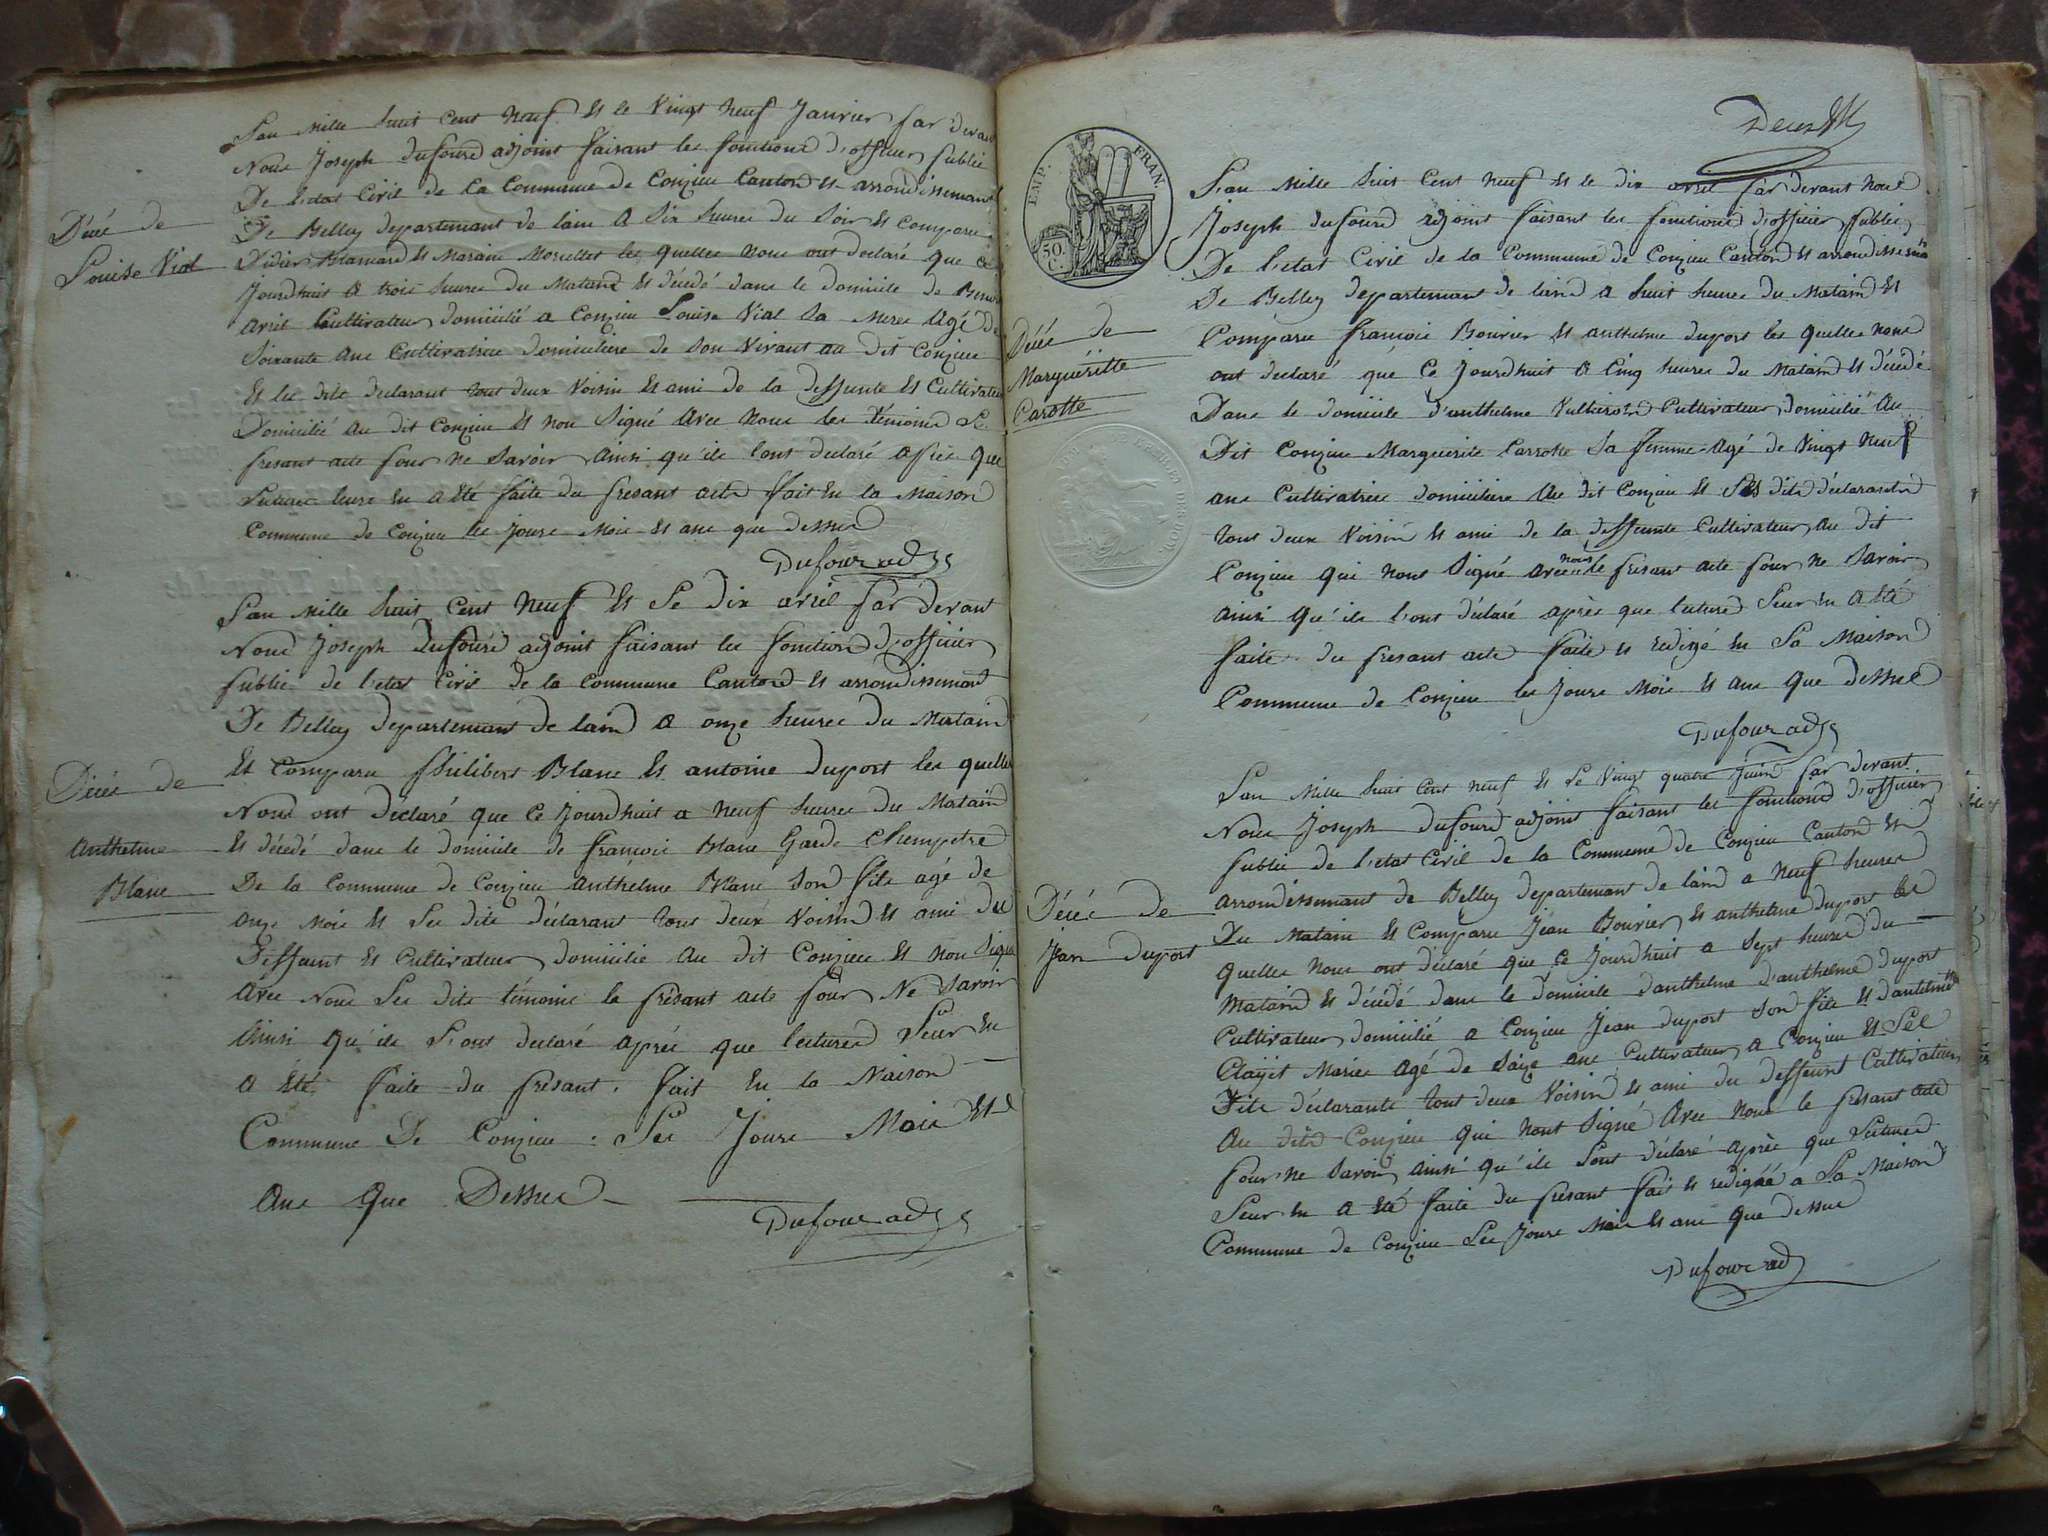 L'an mille huit cent neuf et le vingt neuf Janvier par devant
Nous Joseph dufourd adjoint faisant les fonctions d'officier public
De l'etat Civil de la Commune de Conzieu Canton et arrondissement
De Belley departement de lain a six heures du soir est comparu
Décé de
Louise Vial
Didier et Marain Morellet les quelles nous ont declaré que ce
Jourdhuit a trois heures du Matand est décédé dans le domicile de
cultivateur domicilié a Conzieu Louise Vial sa Mere agé de
soixante ans Cultivatrice domiciliere de son Vivant au dit Conzieu
Et les dits declarant tout deux Voisin et ami de la deffunte et Cultivateur
Domicilié au dit Conzieu et non signé avec nous les témoins le
presant acte pour ne savoir ainsi qu'ils lont declaré après que
lecture leure en a été faite du presant acte fait en la Maison
Commune de Conzieu les jours Mois et ans que dessus
Dufour adj
L'an mille huit cent neuf et le dix avril par devant
Nous Joseph dufourd adjoint faisant les fonction d'officier
public de l'etat Civil de la Commune Canton et arrondissement
De Belley departemant de lain a onze heures du Matain
Et Comparu philibert Blanc et antoine duport les quelles
Décés de
Anthelme
Blanc
Nous ont déclaré que ce Jourdhuit a neuf heures du Matain
Et décédé dans le domicile de françois Blanc Garde Chempetre
De la Commune de Conzieu anthelme Blanc son fils agé de
onze mois et les dits déclarant tout deux Voisin et ami du
Deffunt et Cultivateur domicilié au dit Conzieu et non signé
avec nous les dits témoins le présant acte pour ne savoir
Ainsi qu'ils l'ont declaré après que lecture leur en
a été faite du présant. fait en la Maison
Commune De Conzieu : Les Jours Mois et
Ans que Dessus
Dufour adj
EMP. FRAN.
50 C.
Deux
L'an mille huit cent neuf et le dix avril par devant nous
Joseph dufourd adjoint faisant les fonctions d'officier public
De l'etat Civil de la Commune de Conzieu Canton et arrondissemant
De Belley departemant de laind a huit heures du Mataind et
Décés de
Marguéritte
Carotte
Comparu françois Bouvier et anthelme duport les quelles nous
ont declaré que ce Jourdhuit a Cinq heures du Mataind et décédé
Dans le domicile d'anthelme Cultivateur domicilié au
Dit Conzieu Marguerite Carrotte sa femme agé de vingt neuf
ans Cultivatrice domiciliere au dit Conzieu et les dits déclarants
tout deux Voisin et ami de la deffunte Cultivateur au dit
Conzieu qui nont signé avec nous le presant acte pour ne savoir
ainsi qu'ils l'ont déclaré après que lecture leur en a été
faite du presant acte faite et redigé en la Maison
Commune de Conzieu les Jours Mois et ans que dessus
Dufour adj
L'an mille huit cent neuf et le vingt quatre Juin par devant
Nous Joseph dufourd adjoint faisant les fonctions d'officier
public de l'etat Civil de la Commune de Conzieu Canton et
arrondissemant de Belley departemant de laind a neuf heures
Décés de
Jean duport
Du Matain et Comparu Jean Bouvier et anthelme duport les
quelles nous ont déclaré que ce Jourdhuit a sept heures du
mataind et décédé dans le domicile danthelme d'anthelme duport
Cultivateur domicilié a Conzieu Jean duport son fils et dantelmette
Mariée agé de saize ans Cultivateur a Conzieu et les
Dits déclarants tout deux Voisin et ami du deffunt Cultivateur
au dits Conzieu qui nont signé avec nous le presant acte
pour ne savoir ainsi qu'ils lont déclaré après que lecture
leur en a été faite du presant fait et redigée a la Maison
Commune de Conzieu les jours Mois et ans que dessus
Dufour adj